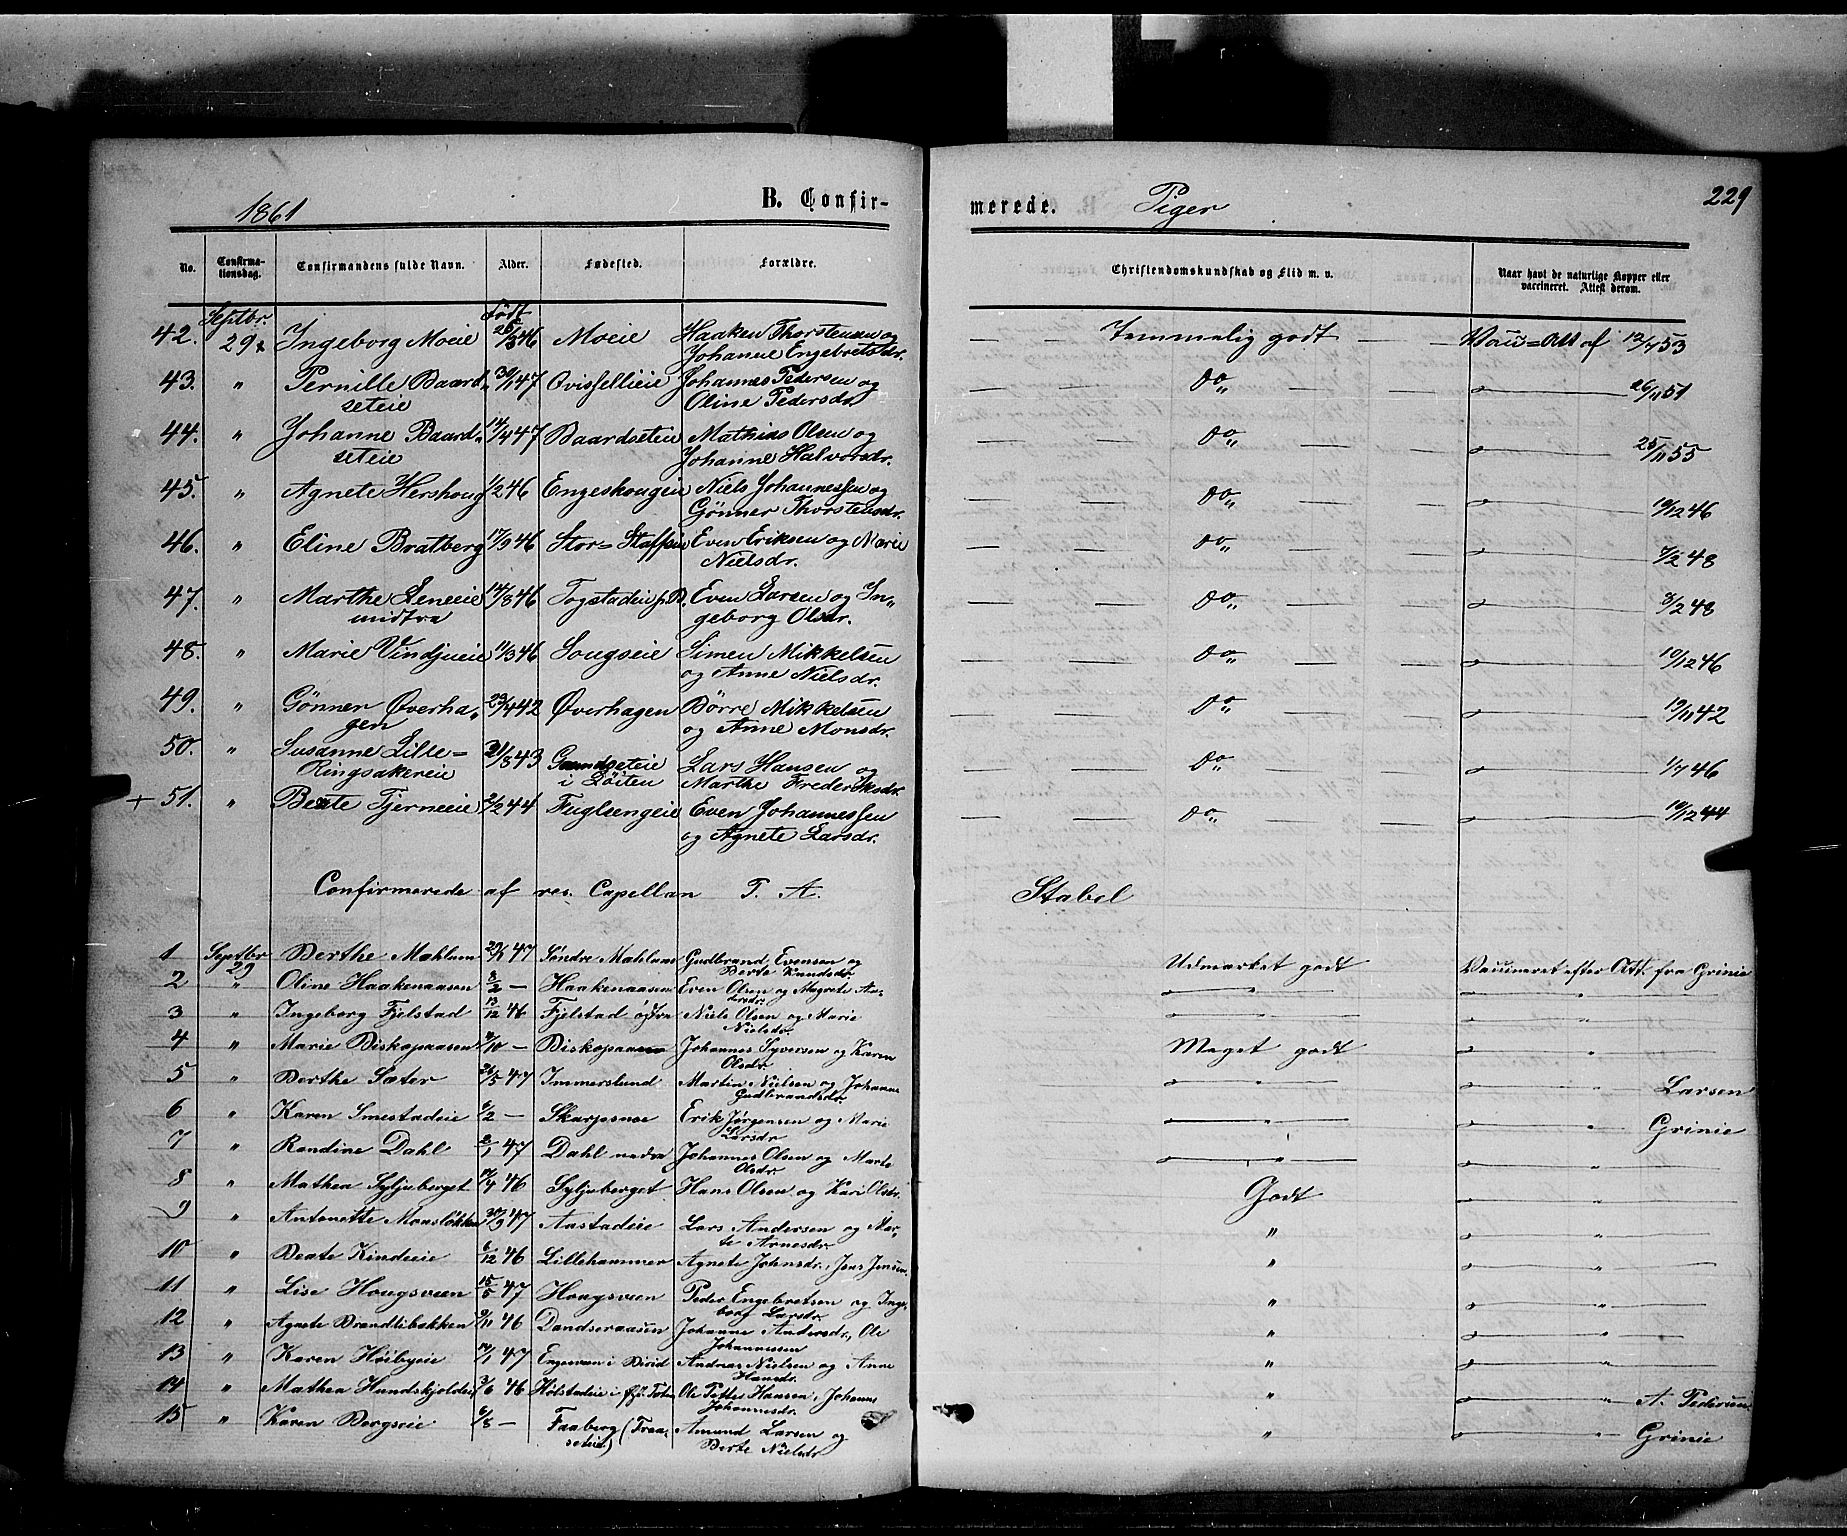 1861 B. Confir- merede. Piger 229
No. Confirma-tionsdag. Confirmandens fulde Navn. Alder. Fødested. Forældre. Christendomskundskab og Flid m. v. Naar havt de naturlige Kopper eller vaccineret. Attest derom.
Septbr. født
42. 29. Ingeborg Moeie 46 Moeie Haaken Thorstensen og Temmelig godt Att af 12/7 53
Johanne Engebretsdr.
43. " Pernille Baard- 47 Ovisfellieie Johannes Pedersen og do„ 26/11 51
seteie Oline Pedersdr.
44. " Johanne Baard- 14/4 47 Baardseteie Mathias Olsen og do„ 25/11 55
seteie Johanne Halvorsdr.
45. " Agnete Hershoug 1/2 46 Engeskougeie Niels Johannessen og do„ 10/12 46
Gønner Thorstensdr.
46. " Eline Bratberg 17/9 46 Stor-Staffsie Even Eriksen og Marie do„ 7/2 48
Nielsdr.
47. " Marthe Leneeie 14/8 46 Even Larsen og In- do„ 8/2 48
undtra geborg Olsdr.
48. " Marie Vindjueie 11/3 46 Sougseie Simen Mikkelsen do„ 10/12 46
og Anne Nielsdr.
49. " Gønner Øverha- 23/4 42 Øverhagen Børre Mikkelsen do„ 13/11 42
gen og Anne Monsdr.
50. " Susanne Lille- 31/8 43 Grundseteie Lars Hansen og do„ 1/7 46
Ringsakereie i Løiten Marthe Frederiksdr.
+ 51. " Beate Tjerneeie 2/2 44 Fuglsengeie Even Johannessen do„ 10/12 44
og Agnete Larsdr.
Confirmerede af res. Capellan T. A. Stabel
1 Septbr 29 Berthe Mæhlum 47 Søndre Mæhlum Gudbrand Evensen og Udmærket godt Vaccineret efter Att. fra Grinie
Berte Knudsdr.
2 " Oline Haakenaasen 8/2 — Haakenaasen Even Olsen og Magrete An- " "
dersdr.
3 " Ingeborg Fjelstad 13/12 46 Fjelstad øvra Niels Olsen og Marie " "
Nielsdr.
4 " Marie Biskopaasen /10 — Biskopaasen Johannes Syversen og Karen Meget godt "
Olsdr
5 " Berthe Sæter 26/5 47 Immerslund Martin Nielsen og Johanne " Larsen
Gudbrandsdr.
6 " Karen Smestadeie 6/2 — Skarpsnoe Erik Jørgensen og Marie " Grinie
Larsdr
7 " Randine Dahl 2/1 47 Dahl nedra Johannes Olsen og Marte " "
Olsdr.
8 " Mathea Syljuberget 46 Syljuberget Hans Olsen og Kari Olsdr. Godt "
9 " Antonette Moasløkken 47 Aastadeie Lars Andersen og Mar- " "
te Arnesdr.
10 " Beate Kindeeie 6/12 46 Lillehammer Agnete Johnsdr., Jens Jensen. " "
11 " Lise Hougsveen 15/5 47 Hougsveen Peder Engebretsen og Inge- " "
borg Larsdr.
12 " Agnete Brandlibakken 9/11 46 Dandseraasen Johanne Andersdr., Ole " "
Johannesen
13 " Karen Høibyeie 14/1 47 Engeveen i Birid Andreas Nielsen og Anne " "
Hansdr.
14 " Mathea Hundskjoldeie 3/6 46 Holstadeie i Øst. Toten Ole Petter Hansen, Johanne " A. Pedersen
Johannesdr.
15 " Karen Bergseie 6/8 — Faaberg (Fraa- Amund Larsen og " Grinie
seteie) Berte Nielsdr